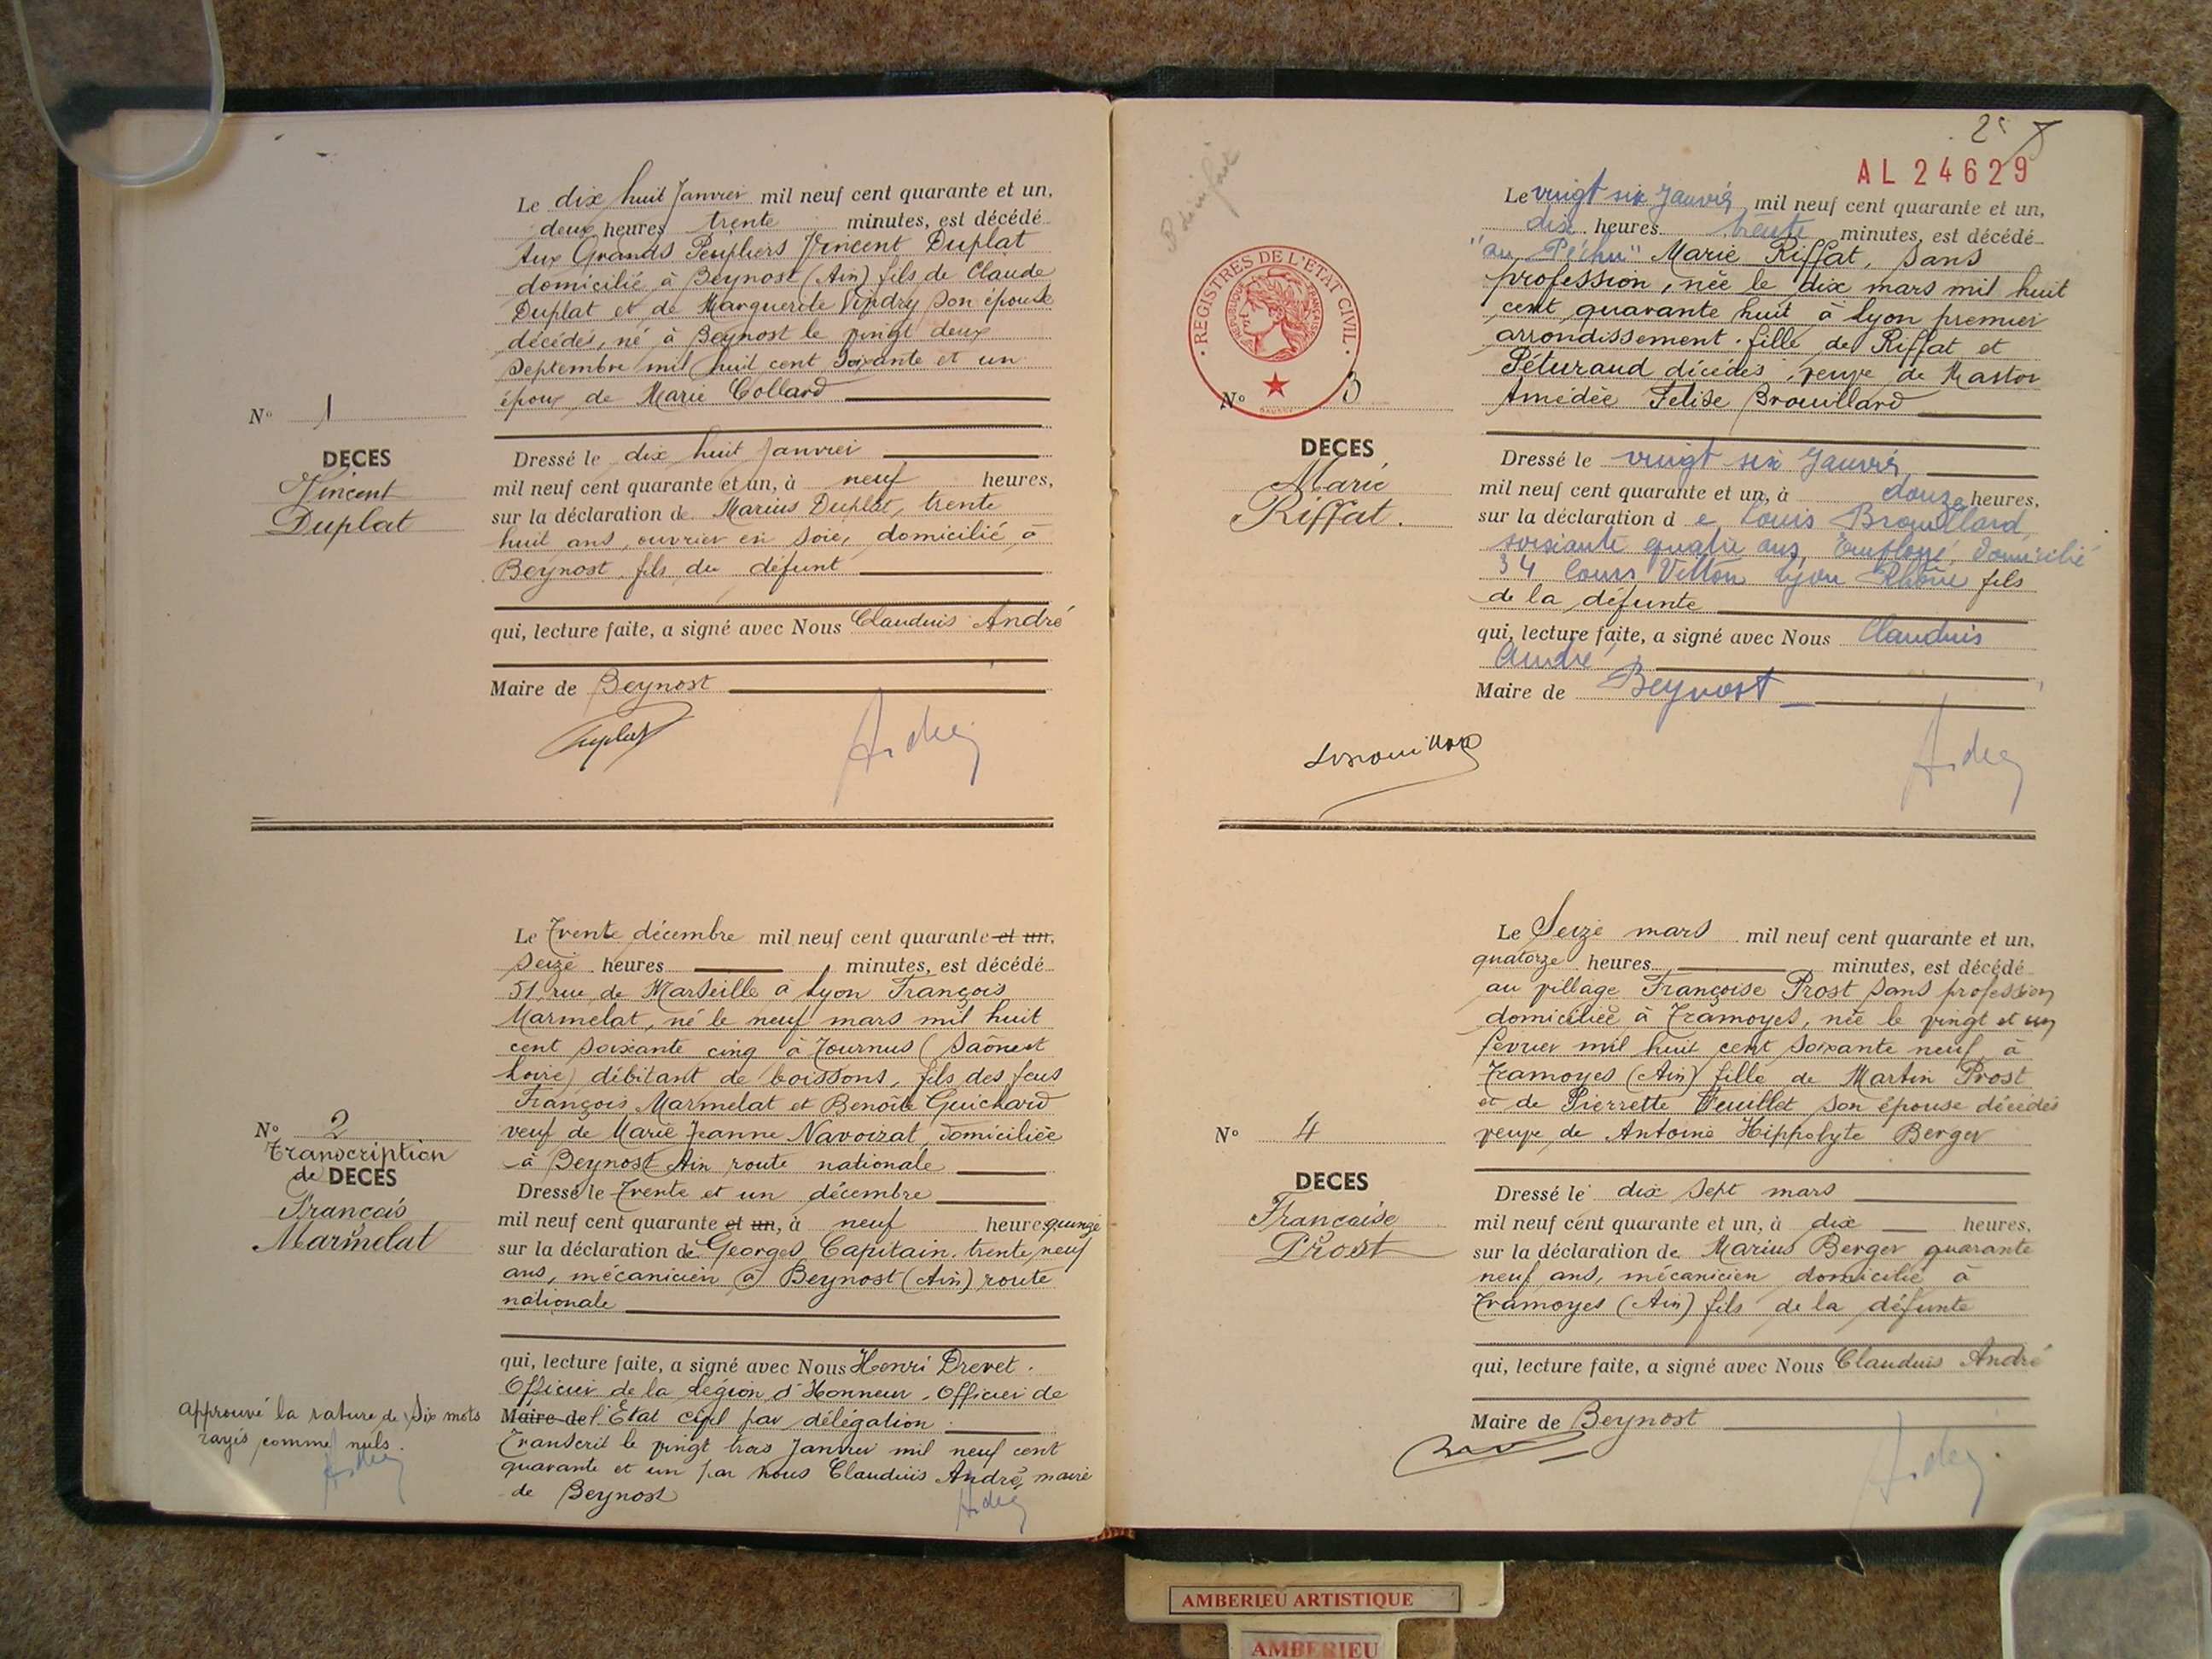 Le dix huit Janvier mil neuf cent quarante et un,
deux heures trente minutes, est décédé
Aux Grands Peupliers Vincent Duplat
domicilié à Beynost (Ain) fils de Claude
Duplat et de Marguerite son épouse
décédés, né à Beynost le vingt deux
Septembre mil huit cent soixante et un
époux de Marie Collard
N° 1
DECES
Vincent
Duplat
Dressé le dix huit Janvier
mil neuf cent quarante et un, à neuf heures,
sur la déclaration de Marius Duplat, trente
huit ans, ouvrier en soie, domicilié à
Beynost fils du défunt
qui, lecture faite, a signé avec Nous Claudius André
Maire de Beynost
Duplat
Le Trente décembre mil neuf cent quarante et un,
Seize heures minutes, est décédé
51 rue de Marseille à Lyon François
Marmelat, né le neuf mars mil huit
cent soixante cinq à Tournus (Saône et
Loire) débitant de boissons, fils des feus
François Marmelat et Benoîte Guichard
veuf de Marie Jeanne Navoizat, domiciliée
à Beynost Ain route nationale
N° 2
Transcription
de DECES
François
Marmelat
Dressé le Trente et un décembre
mil neuf cent quarante et un, à neuf heures quinze
sur la déclaration de Georges Capitain, trente neuf
ans, mécanicien à Beynost (Ain) route
nationale
qui, lecture faite, a signé avec Nous Henri Drevet.
Officier de la Légion d'Honneur, Officier de
Maire de l'Etat civil par délégation.
Transcrit le vingt trois Janvier mil neuf cent
quarante et un par nous Claudius André, maire
de Beynost
Approuvé la rature de Six mots
rayés comme nuls.
2
AL 24629
Le vingt six Janvier mil neuf cent quarante et un,
dix heures trente minutes, est décédé
"au Péchu" Marie Riffat, sans
profession, née le dix mars mil huit
cent quarante huit à Lyon premier
arrondissement. fille de Riffat et
Péturaud décédés, veuve de Mastor
Amédée Felise Brouillard
REGISTRES DE L'ETAT CIVIL
REPUBLIQUE FRANÇAISE
N° 3
DECES
Marie
Riffat.
Dressé le vingt six Janvier
mil neuf cent quarante et un, à douze heures,
sur la déclaration d e Louis Brouillard,
soixante quatre ans, Employé domicilié
34 Cours Vitton Lyon Rhône fils
de la défunte
qui, lecture faite, a signé avec Nous Claudius
André
Maire de Beynost
Le Seize mars mil neuf cent quarante et un,
quatorze heures minutes, est décédé
au village Françoise Prost sans profession
domiciliée à Tramoyes, née le vingt et un
février mil huit cent soixante neuf à
Tramoyes (Ain) fille de Martin Prost
et de Pierrette Feuillet son épouse décédés
veuve de Antoine Hippolyte Berger
N° 4
DECES
Françoise
Prost
Dressé le dix sept mars
mil neuf cent quarante et un, à dix heures,
sur la déclaration de Marius Berger quarante
neuf ans, mécanicien domicilié à
Tramoyes (Ain) fils de la défunte
qui, lecture faite, a signé avec Nous Claudius André
Maire de Beynost
AMBERIEU ARTISTIQUE
AMBERIEU